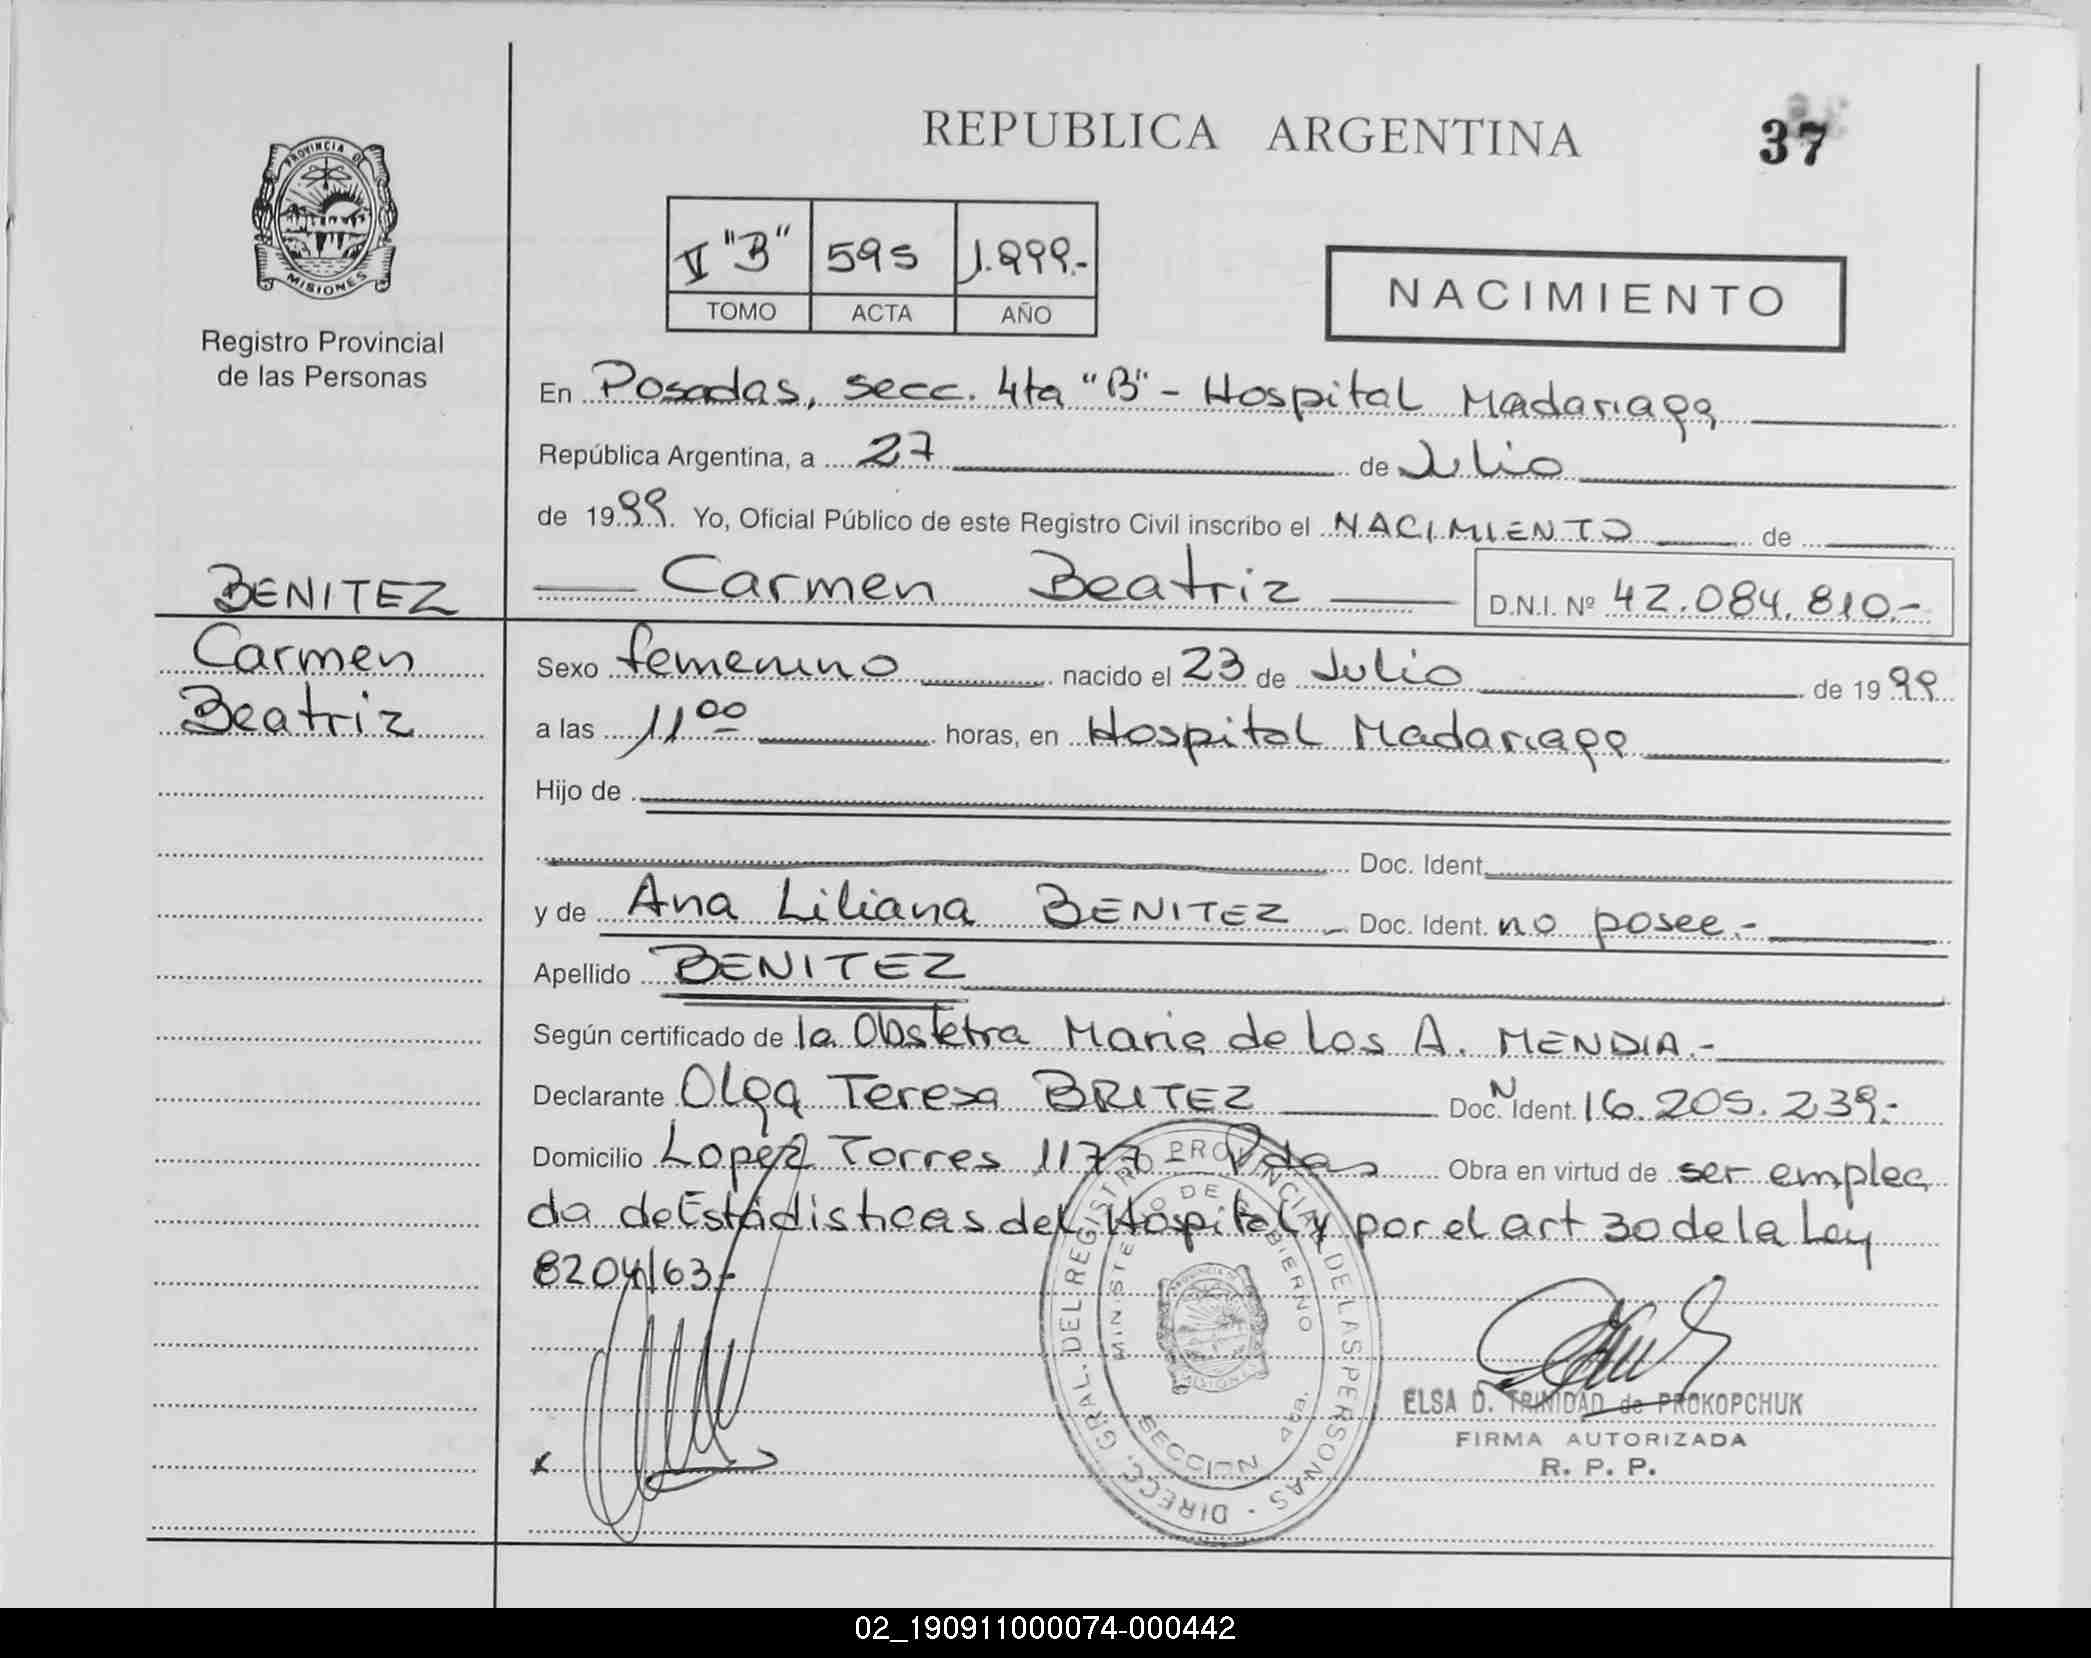 REPUBLICA ARGENTINA
37
PROVINCIA DE
MISIONES
Registro Provincial
de las Personas
V "B" 595 1.999.-
TOMO ACTA AÑO
NACIMIENTO
En Posadas, secc. 4ta "B" - Hospital Madariaga
República Argentina, a 27 de Julio
de 1999. Yo, Oficial Público de este Registro Civil inscribo el NACIMIENTO de
BENITEZ
Carmen Beatriz D.N.I. Nº 42.084.810.-
Carmen
Beatriz
Sexo femenino nacido el 23 de Julio de 1999
a las 11 00 horas, en Hospital Madariaga
Hijo de
Doc. Ident.
y de Ana Liliana BENITEZ Doc. Ident. no posee.-
Apellido BENITEZ
Según certificado de la Obstetra Maria de los A. MENDIA.-
Declarante Olga Teresa BRITEZ Doc. N Ident. 16.205.239.-
Domicilio Lopez Torres 1177 Pdas Obra en virtud de ser emplea
da de Estadisticas del Hospital y por el art 30 de la Ley
8204/63.-
DIRECC. GRAL. DEL REGISTRO PROVINCIAL DE LAS PERSONAS
MINISTERIO DE GOBIERNO
SECCION 4ta.
MISIONES
ELSA D. TRINIDAD de PROKOPCHUK
FIRMA AUTORIZADA
R. P. P.
x
02_190911000074-000442